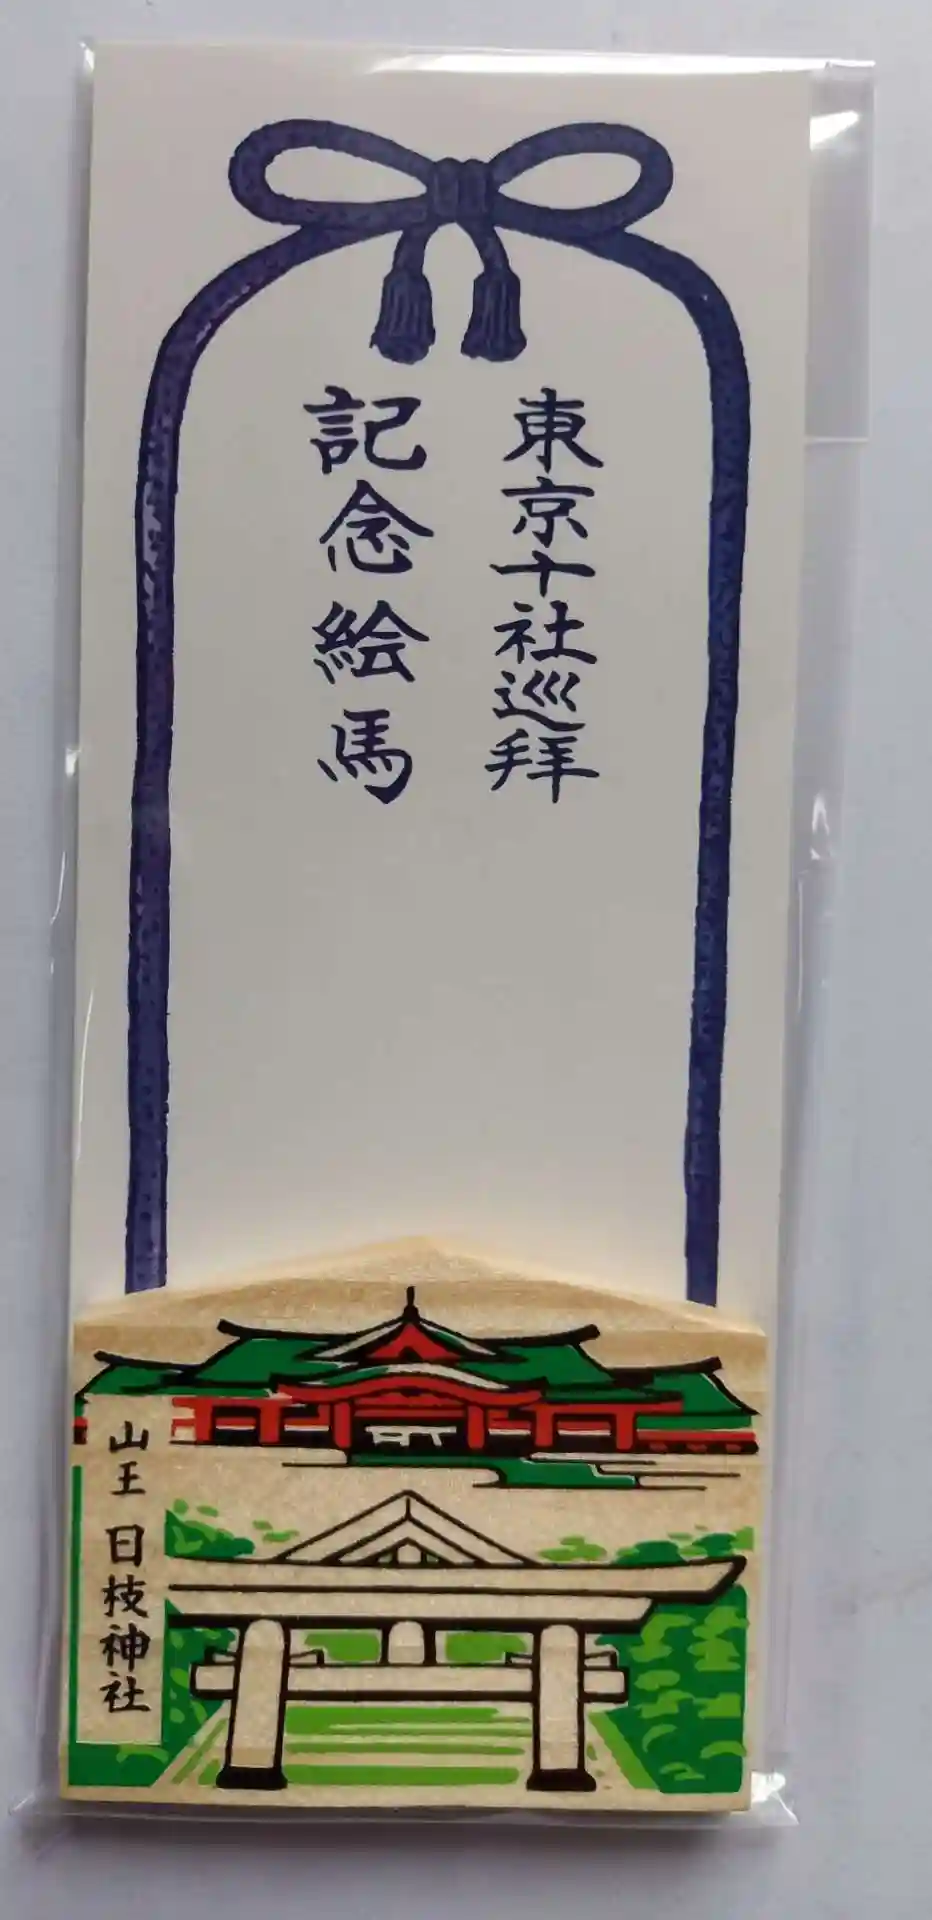 東京十社巡拝
記念絵馬
山王 日枝神社